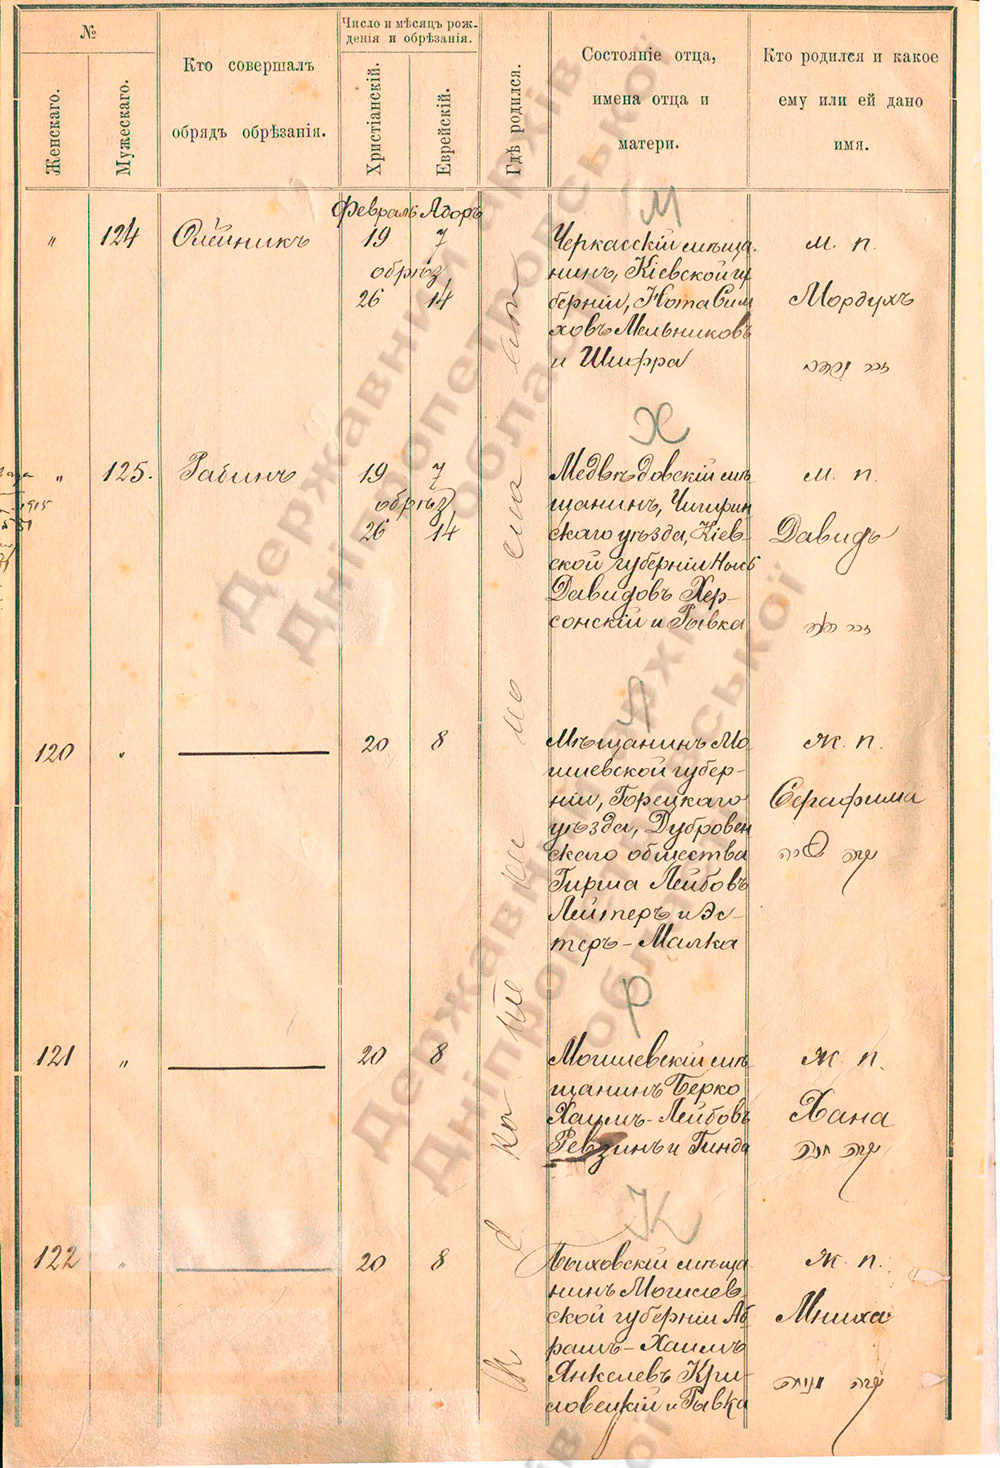 №
Женскаго.
Мужескаго.
Кто совершалъ
обрядъ обрѣзанія.
Число и мѣсяцъ рож-
денія и обрѣзанія.
Христіанскій.
Еврейскій.
Гдѣ родился.
Состояніе отца,
имена отца и
матери.
Кто родился и какое
ему или ей дано
имя.
Февраль Адоръ
М
" 124 Олейникъ 19 7
обрѣз.
26 14
Черкасскій мѣща-
нинъ, Кіевской гу
берніи, Нота Сим
ховъ Мельниковъ
и Шифра
м. п.
Мордухъ
Х
" 125. Рабинъ 19 7
обрѣз.
26 14
1915
Медвѣдовскій мѣ
щанинъ, Чигирин
скаго уѣзда, Кіев-
ской губерніи
Давидовъ Хер-
сонскій и Рывка
м. п.
Давидъ
120 " 20 8
Мѣщанинъ Мо
гилевской губер-
ніи, Горецкаго
уѣзда, Дубровен
скаго общества
Гирша Лейбовъ
Лейтеръ и Эс-
теръ-Малка
ж. п.
Серафима
Р
121 " 20 8
Могилевскій мѣ
щанинъ Берко
Хаимъ-Лейбовъ
Ревзинъ и Гинда
ж. п.
Хана
К
122 " 20 8
Быховскій мѣща
нинъ Могилев
ской губерніи Аб
рамъ-Хаимъ
Янкелевъ Кри-
ловецкій и Рывка
ж. п.
Мниха
Державний архів
Дніпропетровської
області
Державний архів
Дніпропетровської
області